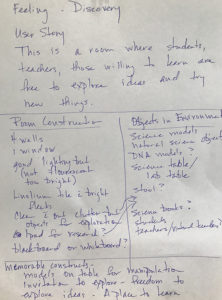 Feeling - Discovery
User Story
This is a room where students,
teachers, those willing to learn are
free to explore ideas and try
new things.
Room Construction
4 walls
1 window
good lighting but
(not fluorescent
too bright)
linoleum tile & bright
Clean & not cluttered but
objects for exploration
pad for research?
blackboard or whiteboard?
Objects in Environment
Science models
natural science objects
DNA models?
science table/
lab table
stool?
Science books?
students
teachers/
Memorable constructs.
models on table for manipulation
invitation to explore - freedom to
explore ideas. A place to learn